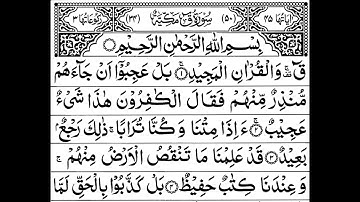 اٰیَاتُهَا ۴۵ (۵۰) سُوْرَةُ قٓ مَكِّیَّةٌ (۳۴) رُكُوْعَاتُهَا ۳
بِسْمِ اللّٰهِ الرَّحْمٰنِ الرَّحِیْمِ
قٓ ۚ۫ وَ الْقُرْاٰنِ الْمَجِیْدِ ۝۱ بَلْ عَجِبُوْۤا اَنْ جَآءَهُمْ
مُّنْذِرٌ مِّنْهُمْ فَقَالَ الْكٰفِرُوْنَ هٰذَا شَیْءٌ
عَجِیْبٌ ۝۲ ءَاِذَا مِتْنَا وَ كُنَّا تُرَابًا ۚ ذٰلِكَ رَجْعٌۢ
بَعِیْدٌ ۝۳ قَدْ عَلِمْنَا مَا تَنْقُصُ الْاَرْضُ مِنْهُمْ ۚ
وَ عِنْدَنَا كِتٰبٌ حَفِیْظٌ ۝۴ بَلْ كَذَّبُوْا بِالْحَقِّ لَمَّا